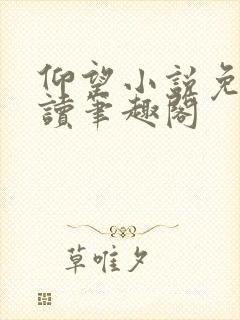 仰望小説免
讀筆趣閣
草唯夕